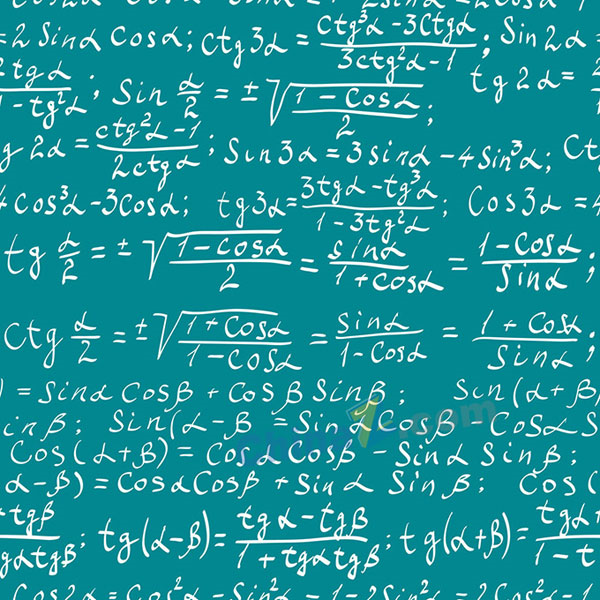 = 2 Sinα Cosα; ctg3α = (ctg³α - 3Ctgα)/(3ctg²α - 1); Sin 2α =
2tgα/(1 - tg²α); Sin α/2 = ±√((1 - Cosα)/2); tg 2α =
g 2α = (ctg²α - 1)/(2ctgα); Sin3α = 3sinα - 4Sin³α; Ct
4cos³α - 3Cosα; tg3α = (3tgα - tg³α)/(1 - 3tg²α); Cos3α = 4
tg α/2 = ±√((1 - cosα)/2) = sinα/(1 + cosα) = (1 - Cosα)/Sinα;
Ctg α/2 = ±√((1 + Cosα)/(1 - Cosα)) = Sinα/(1 - Cosα) = (1 + Cosα)/Sinα;
) = Sinα Cosβ + Cosβ Sinβ; Sin(α+β)
inβ; Sin(α-β = Sinα Cosβ Cosα S
Cos(α+β) = Cos Cosβ - Sinα Sinβ;
α-β) = CosαCosβ + Sinα Sinβ; Cos(
+tgβ/gαtgβ; tg(α-β) = (tgα - tgβ)/(1 + tgαtgβ); tg(α+β) = tgα+/1 - t
Cos2α = Cos²α - Sin²α = 1 - 2Sin²α = 2Cos²α - 1